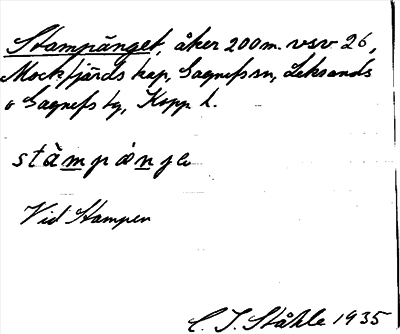 Stampänget, åker 200 m. vsv 26,
Mockfjärds kap, Gagnefs sn, Leksands
o Gagnefs tg, Kopp. l.
stàmpǿnge
Vid Stampen
C. I. Ståhle 1935